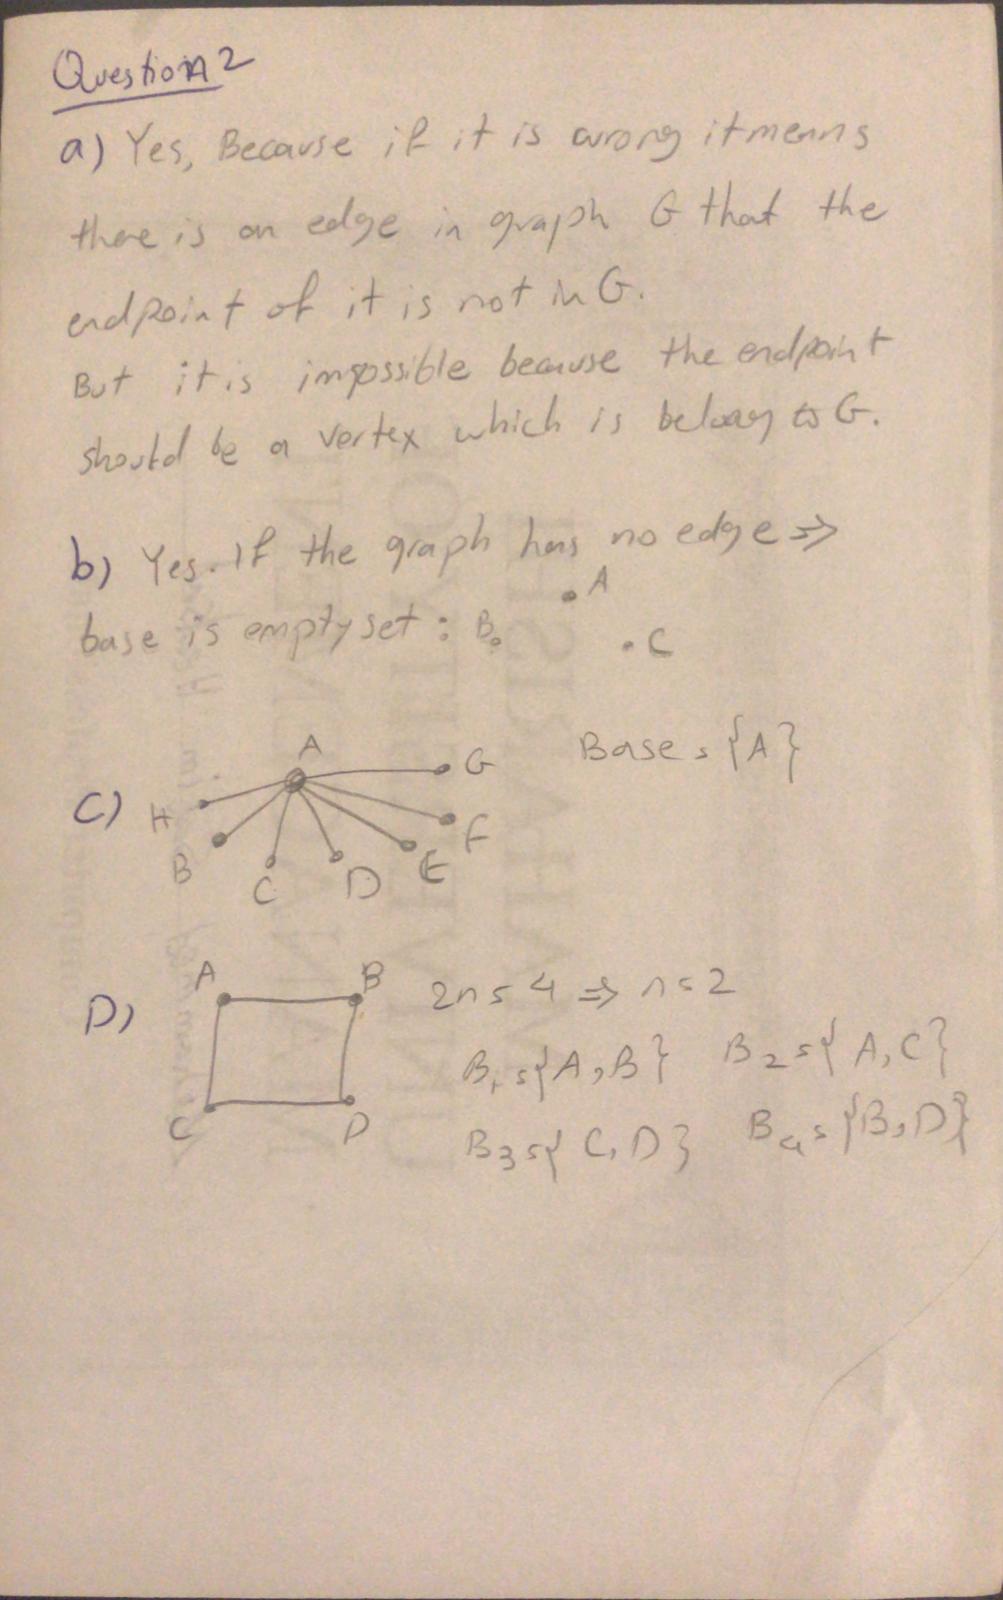 Question 2
a) Yes, Because if it is wrong it means
there is an edge in graph G that the
endpoint of it is not in G.
But it is impossible because the endpoint
should be a vertex which is belong to G.
b) Yes. If the graph has no edge ⇒
base is empty set : B A C
C) A B C D E F G H Base = {A}
D) A B C D 2n = 4 ⇒ n = 2
B1 = {A, B} B2 = {A, C}
B3 = {C, D} B4 = {B, D}